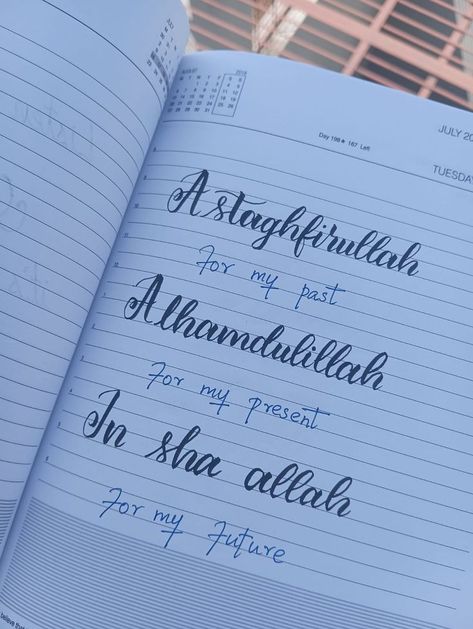 AUGUST
Day 198★ 167 Left
JULY 20
TUESDA
Astaghfirullah
For my past
Alhamdulillah
For my present
In sha allah
For my Future